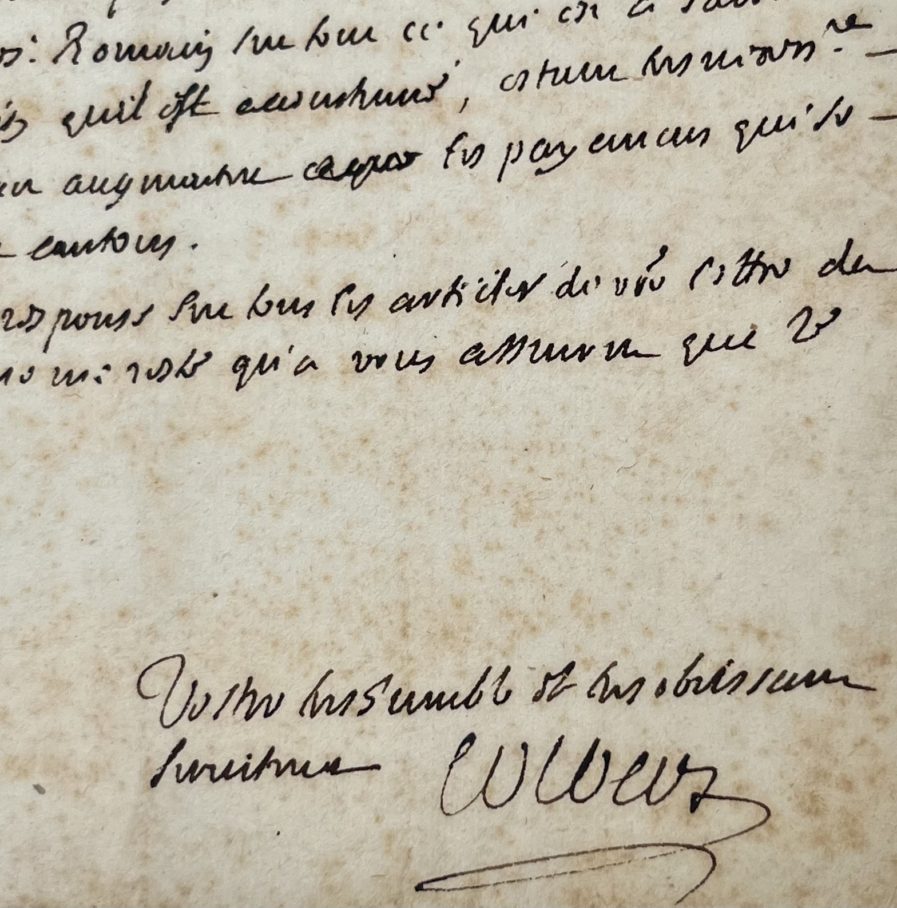 Romain sur tout ce qui est a
qu'il est accoustumé, estant tres necess.re
augmenter les payemens qui se
cantons.
responce sur tous les articles de vre lettre du
me reste qu'a vous asseurer que je
Vostre tres humble et tres obeissant
serviteur Colbert